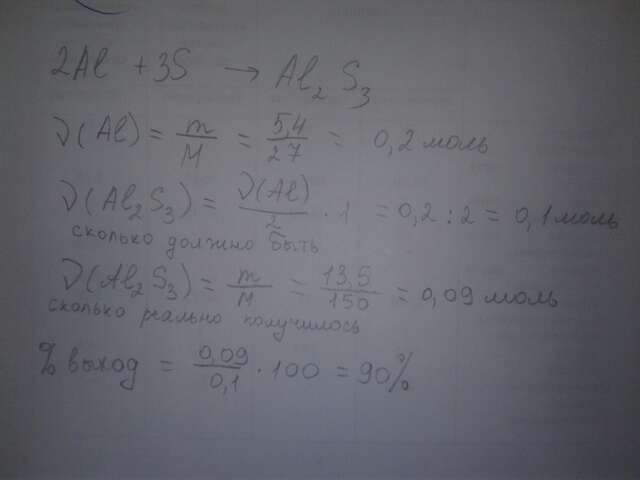 2Al + 3S → Al₂S₃
ν(Al) = m/M = 5,4/27 = 0,2 моль
ν(Al₂S₃) = ν(Al)/2 · 1 = 0,2 : 2 = 0,1 моль
сколько должно быть
ν(Al₂S₃) = m/M = 13,5/150 = 0,09 моль
сколько реально получилось
% выход = 0,09/0,1 · 100 = 90%